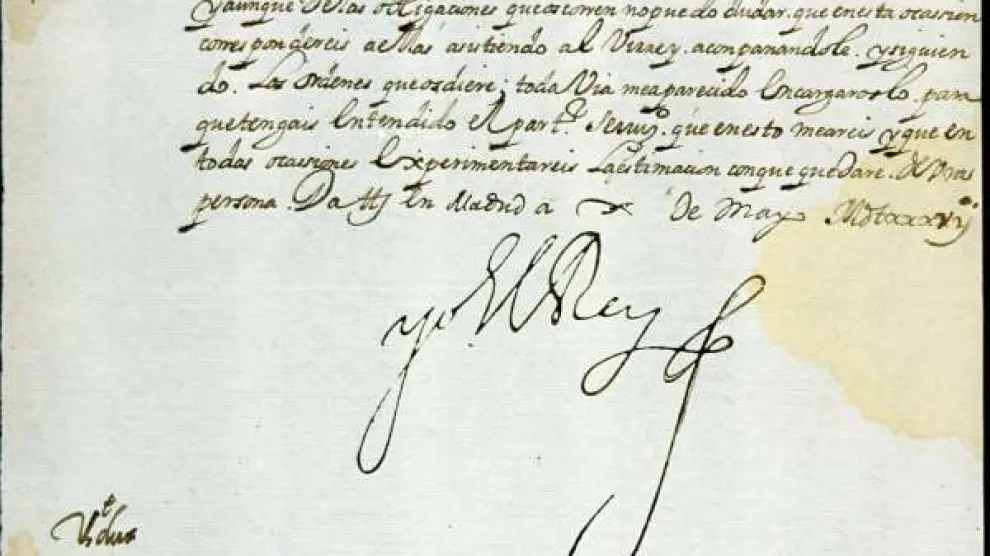 y aunque de las obligaciones que os corren no puedo dudar. que en esta ocassion
corresponderéis a ellas asistiendo al Virrey. acompañandole. y siguien
do. las ordenes que os diere; toda via me a parecido encargaroslo. para
que tengais entendido el part.r servi.o que en esto me areis y que en
todas ocassiones experimentareis la estimacion con que quedare. de vra
persona. Datt en Madrid a x de Mayo
yo El Rey